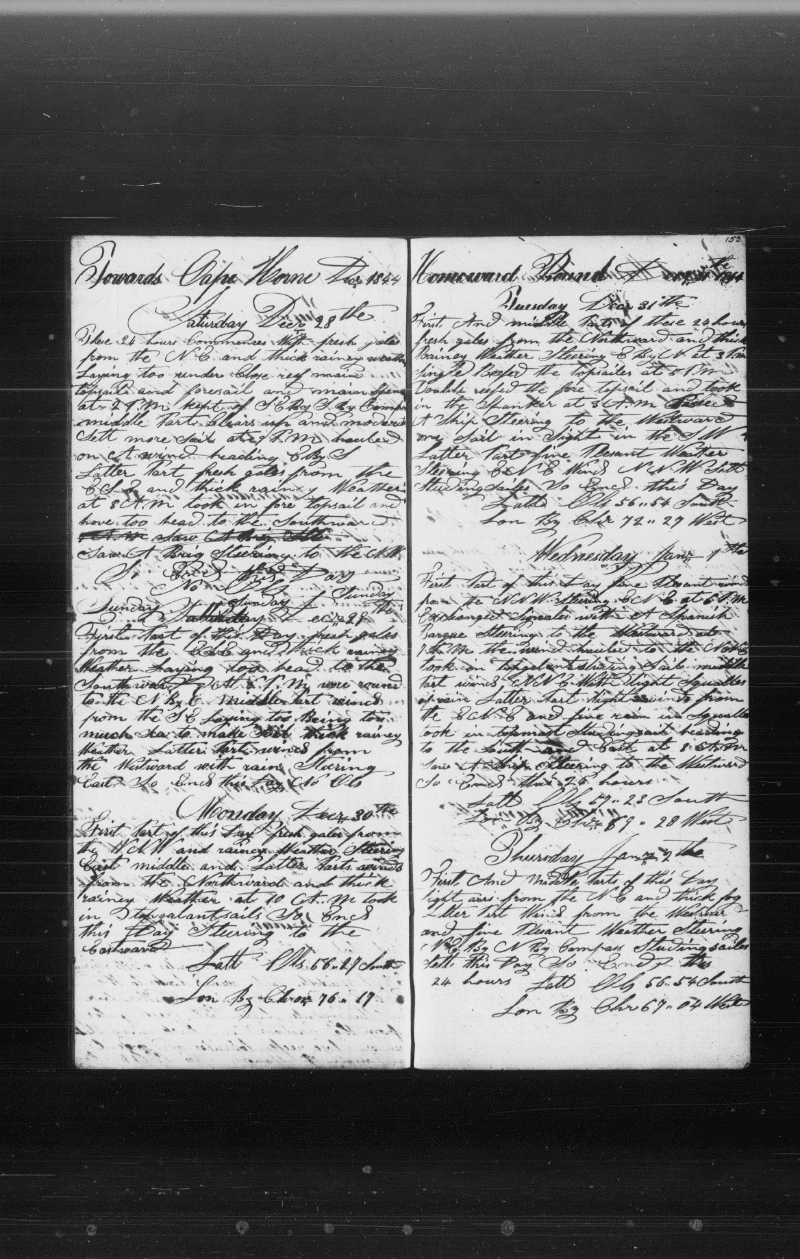 Towards Cape Horne Decr 1844
Saturday Decr 28 the
These 24 hours Commences With fresh gales
from the N.E. and thick rainey weather
Laying too under Close reef main
topsail and foresail and main Spencer
at 2 P.M. kept of S E By S By Compass
middle Part Clears up and moderate
Sett more Sail at 9 P.M. hauled
on A wind heading E By S
Latter Part fresh gales from the
and thick rainy Weather
at 8 A.M took in fore topsail and
hove too head to the Southward
Saw A Brig Steering to the
So Ends this Day
No Obs
Sunday Decr 29 the
First Part of this Day fresh gales
from the and thick rainey
Weather Laying too head to the
Southward At 8 P.M. wore round
to the N By E. middle Part winds
from the S E Laying too Being too
much Sea to make Sail thick rainey
Weather Latter Part winds from
the Westward with rain Steering
East So Ends this Day No Obs
Monday Decr 30 the
First Part of this Day fresh gales from
the W.N.W and rainey Weather Steering
East middle and Latter Parts winds
from the Northward and thick
rainey Weather at 10 A.M took
in Topgalantsails So Ends
this Day Steering to the
Eastward
Latt Obs 56 .. 27 South
Lon By Chro 76 .. 17
153
Homeward Bound
Tuesday Decr 31 the
First And middle Parts of these 24 hours
fresh gales from the Northward and thick
Rainey Weather Steering E By N at 3 P.M
Single Reefed the topsailes at 8 P.M
Double reefed the fore topsail and took
in the Spanker at 8 A.M
A Ship Steering to the Westward
one Sail in Sight in the S W
Latter Part fine Plesant Weather
Steering E N E Wind N N W Sett
Studingsailes So Ends this Day
Latt Obs 56 .. 54 South
Lon By Chr 72 .. 27 West
Wednesday Janr 1 the
First Part of this Day fine Plesant wind
from the N N W Steering E N E at 6 P.M
Exchanged Signales with A Spanish
Barque Steering to the Westward at
12 P.M the wind hauled to the
took in Topgalent Steering Sails middle
Part winds light Squalles
of rain Latter Part light winds from
the E N E and fine rain in Squalles
took in topmast Studingsail heading
to the South and East at 8 A.M
Saw A Ship Steering to the Westward
So Ends this 24 hours
Latt Obs 57 .. 23 South
Lon By Chr 67 .. 28 West
Thursday Janr 2 the
First And Middle Parts of this Day
light airs from the N E and thick fog
Latter Part Wind from the Westward
and fine Plesant Weather Steering
By N By Compass Studingsailes
Sett this Day So Ends this
24 hours Latt Obs 56 .. 54 South
Lon By Chr 67 .. 04 West